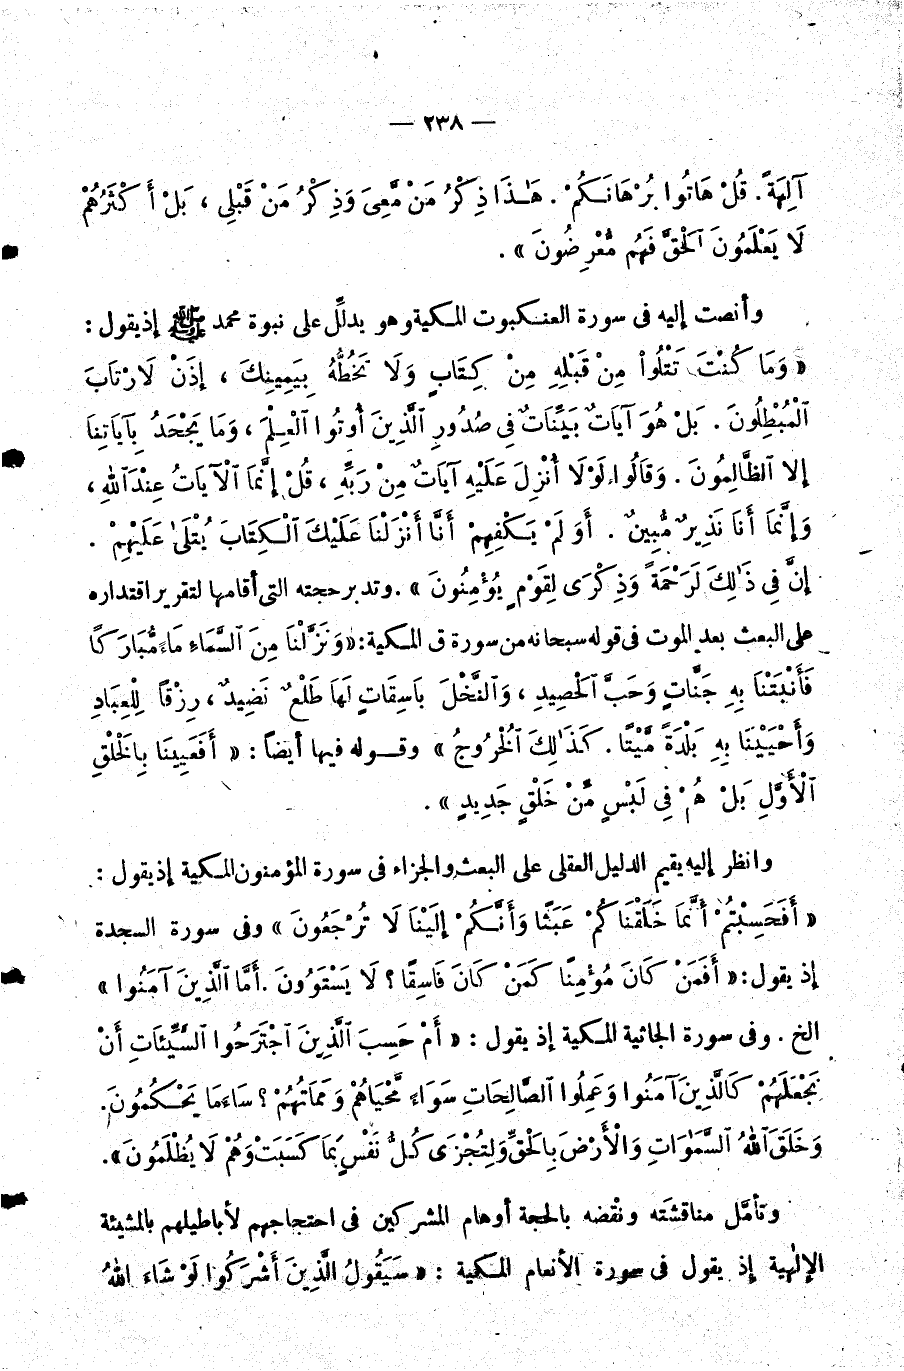 — ٢٣٨ —
آلِهَةً. قُلْ هَاتُوا بُرْهَانَكُمْ. هَٰذَا ذِكْرُ مَنْ مَّعِيَ وَذِكْرُ مَنْ قَبْلِي ، بَلْ أَكْثَرُهُمْ
لَا يَعْلَمُونَ ٱلْحَقَّ فَهُم مُّعْرِضُونَ » .
وأنصت إليه فى سورة العنكبوت المكية وهو يدلِّل على نبوة محمد ﷺ إذ يقول :
« وَمَا كُنْتَ تَتْلُواْ مِنْ قَبْلِهِ مِنْ كِتَابٍ وَلَا تَخُطُّهُ بِيَمِينِكَ ، إِذَنْ لَارْتَابَ
ٱلْمُبْطِلُونَ . بَلْ هُوَ آيَاتٌ بَيِّنَاتٌ فِي صُدُورِ ٱلَّذِينَ أُوتُوا ٱلْعِلْمَ ، وَمَا يَجْحَدُ بِآيَاتِنَا
إلا ٱلظَّالِمُونَ . وَقَالُوا لَوْلَا أُنْزِلَ عَلَيْهِ آيَاتٌ مِنْ رَبِّهِ ، قُلْ إِنَّمَا ٱلْآيَاتُ عِنْدَ ٱللهِ ،
وَإِنَّمَا أَنَا نَذِيرٌ مُّبِينٌ . أَوَلَمْ يَكْفِهِمْ أَنَّا أَنْزَلْنَا عَلَيْكَ ٱلْكِتَابَ يُتْلَىٰ عَلَيْهِمْ .
إِنَّ فِي ذَٰلِكَ لَرَحْمَةً وَذِكْرَى لِقَوْمٍ يُؤْمِنُونَ » . وتدبر حجته التى أقامها لتقرير اقتداره
على البعث بعد الموت فى قوله سبحانه من سورة ق المكية : « وَنَزَّلْنَا مِنَ ٱلسَّمَاءِ مَاءً مُّبَارَكًا
فَأَنْبَتْنَا بِهِ جَنَّاتٍ وَحَبَّ ٱلْحَصِيدِ ، وَٱلنَّخْلَ بَاسِقَاتٍ لَهَا طَلْعٌ نَضِيدٌ ، رِزْقًا لِلْعِبَادِ
وَأَحْيَيْنَا بِهِ بَلْدَةً مَّيْتًا . كَذَٰلِكَ ٱلْخُرُوجُ » وقوله فيها أيضاً : « أَفَعَيِينَا بِالْخَلْقِ
ٱلْأَوَّلِ بَلْ هُمْ فِي لَبْسٍ مِّنْ خَلْقٍ جَدِيدٍ » .
وانظر إليه يقيم الدليل العقلى على البعث والجزاء فى سورة المؤمنون المكية إذ يقول :
« أَفَحَسِبْتُمْ أَنَّمَا خَلَقْنَاكُمْ عَبَثًا وَأَنَّكُمْ إِلَيْنَا لَا تُرْجَعُونَ » وفى سورة السجدة
إذ يقول : « أَفَمَنْ كَانَ مُؤْمِنًا كَمَنْ كَانَ فَاسِقًا ؟ لَا يَسْتَوُونَ . أَمَّا ٱلَّذِينَ آمَنُوا »
الخ . وفى سورة الجاثية المكية إذ يقول : « أَمْ حَسِبَ ٱلَّذِينَ ٱجْتَرَحُوا ٱلسَّيِّئَاتِ أَنْ
نَجْعَلَهُمْ كَالَّذِينَ آمَنُوا وَعَمِلُوا ٱلصَّالِحَاتِ سَوَاءً مَّحْيَاهُمْ وَمَمَاتُهُمْ ؟ سَاءَ مَا يَحْكُمُونَ.
وَخَلَقَ ٱللهُ ٱلسَّمَٰوَاتِ وَالْأَرْضَ بِالْحَقِّ وَلِتُجْزَى كُلُّ نَفْسٍ بِمَا كَسَبَتْ وَهُمْ لَا يُظْلَمُونَ ».
وتأمَّل مناقشتَه ونقْضه بالحجة أوهام المشركين فى احتجاجهم لأباطيلهم بالمشيئة
الإلٰهية إذ يقول فى سورة الأنعام المكية : « سَيَقُولُ الَّذِينَ أَشْرَكُوا لَوْ شَاءَ اللهُ